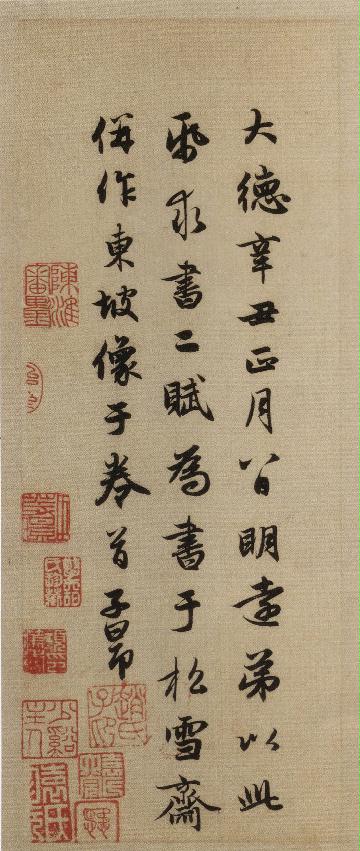 大德辛丑正月八日明遠弟以此
紙求書二賦為書于松雪齋
併作東坡像于卷首子昂
趙氏子昂